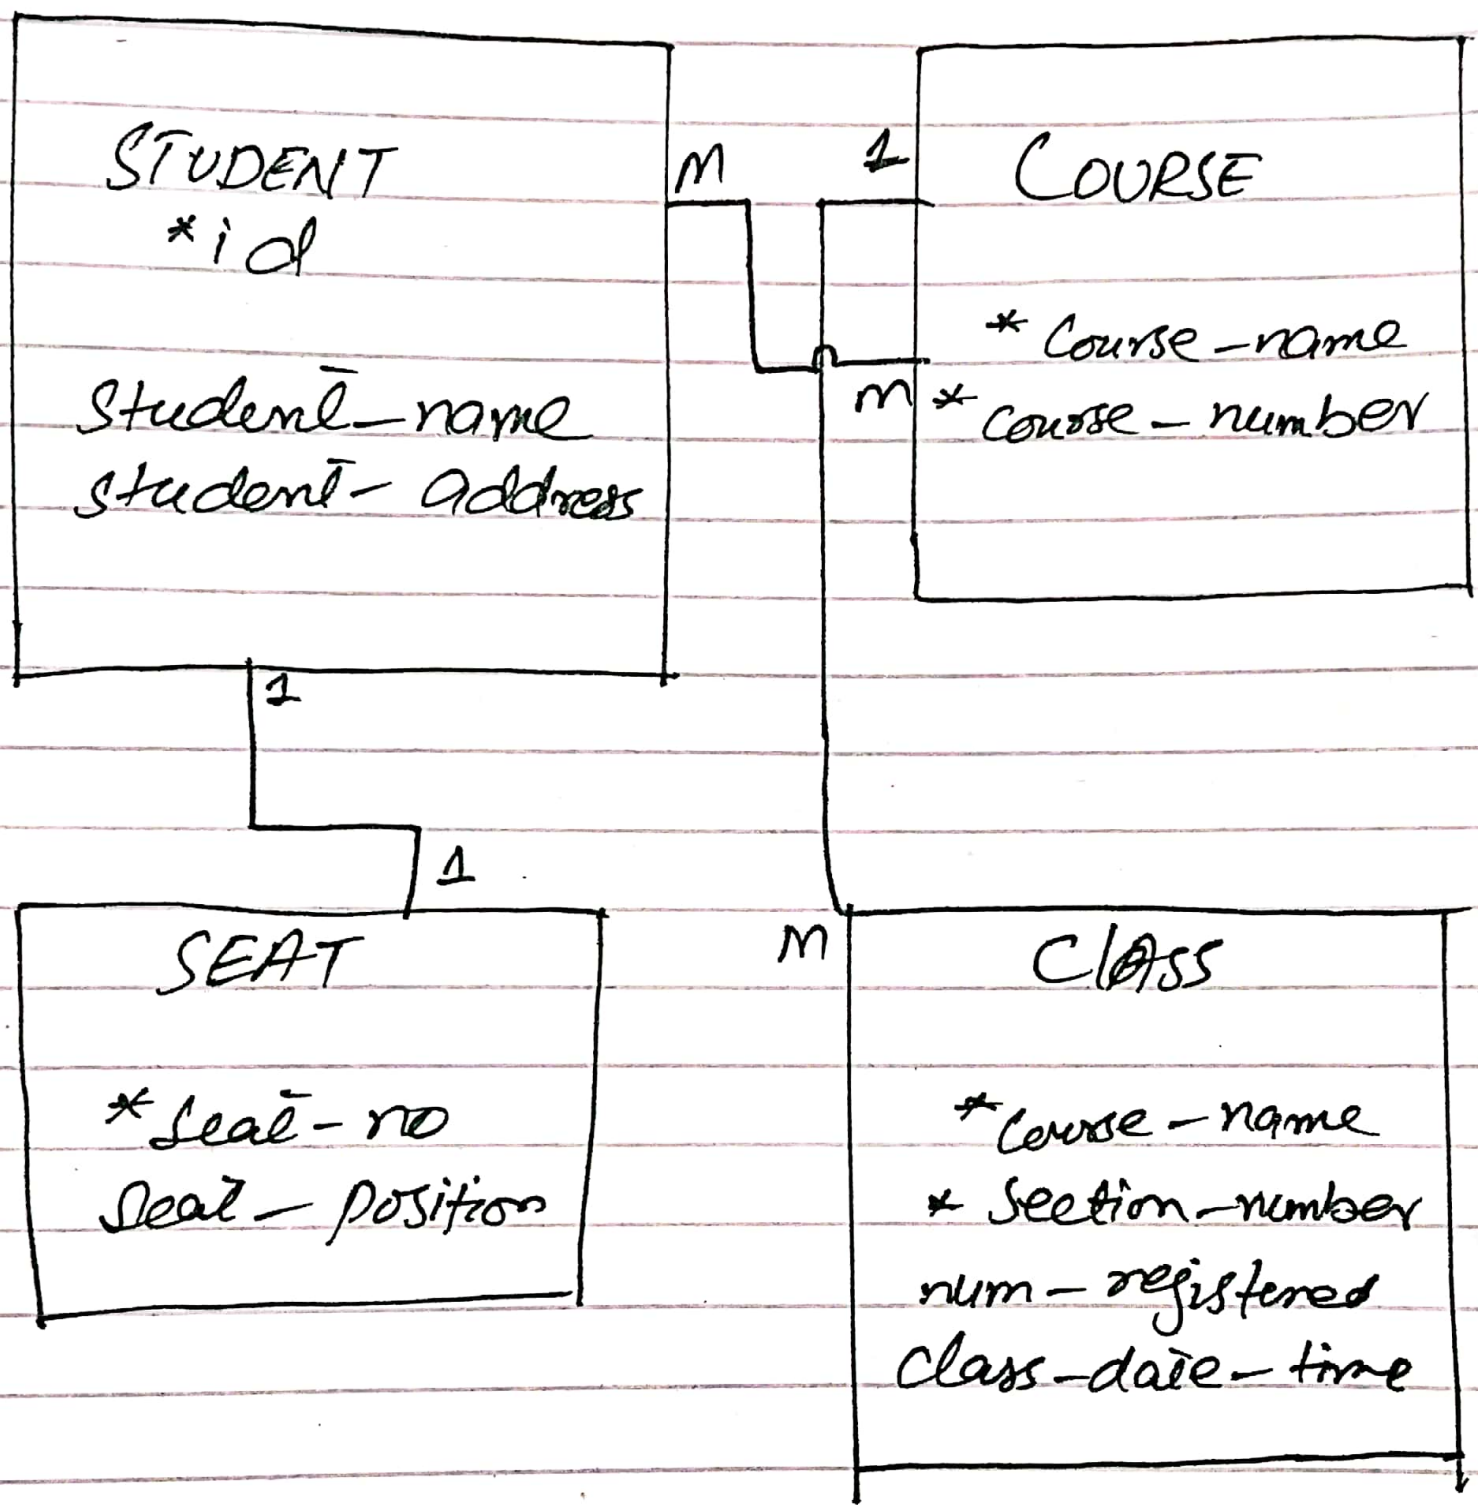 STUDENT
*id
student-name
student-address
M
1
COURSE
*course-name
m
*course-number
1
1
SEAT
*seat-no
seat-position
M
ClASS
*course-name
*section-number
num-registered
class-date-time